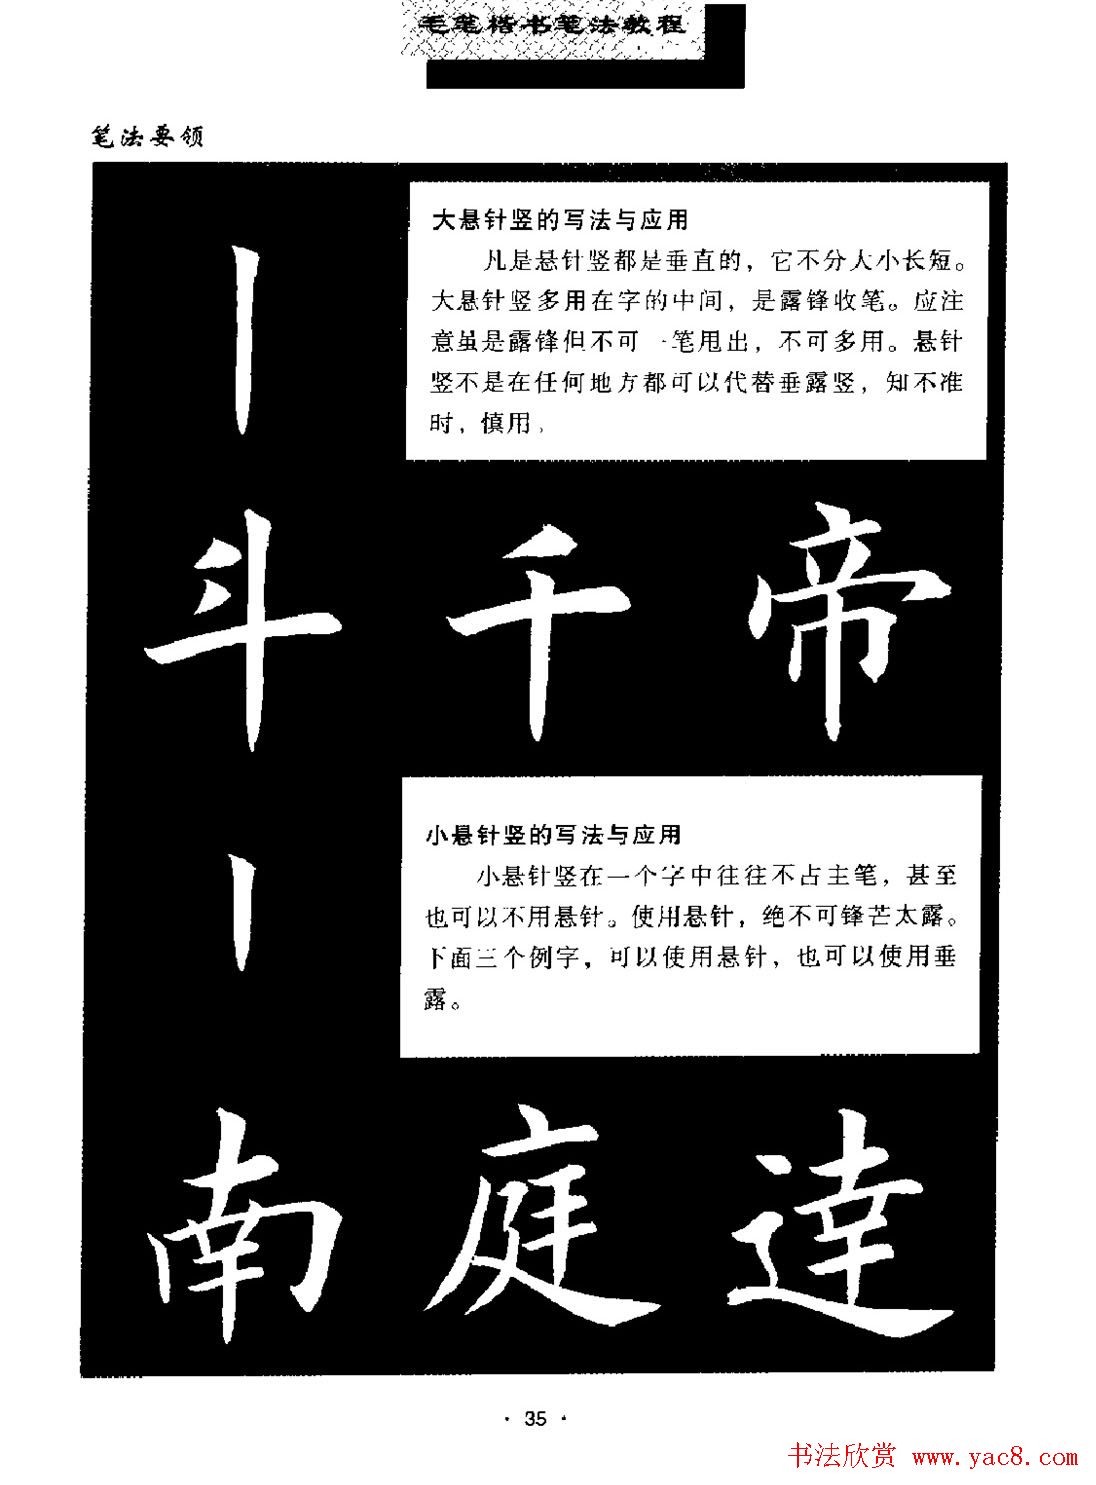 毛笔楷书笔法教程
笔法要领
大悬针竖的写法与应用
凡是悬针竖都是垂直的，它不分大小长短。
大悬针竖多用在字的中间，是露锋收笔。应注
意虽是露锋但不可一笔甩出，不可多用。悬针
竖不是在任何地方都可以代替垂露竖，知不准
时，慎用。
斗 千 帝
小悬针竖的写法与应用
小悬针竖在一个字中往往不占主笔，甚至
也可以不用悬针。使用悬针，绝不可锋芒太露。
下面三个例字，可以使用悬针，也可以使用垂
露。
南 庭 達
· 35 ·
书法欣赏 www.yac8.com